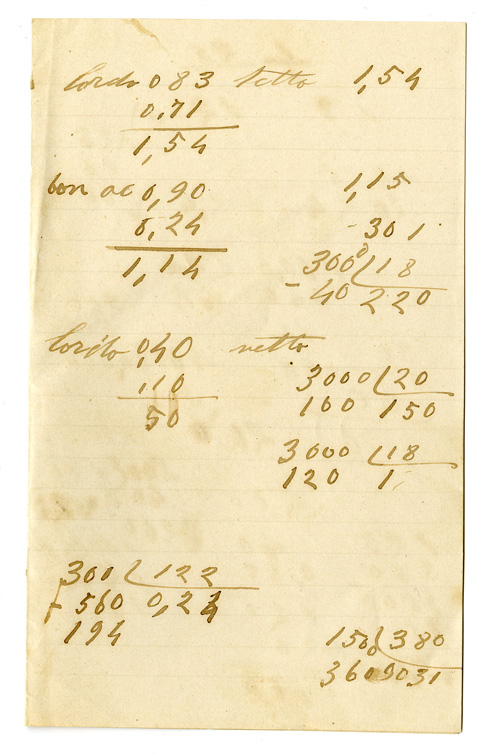 0 83 netto 1,54
0,71
1,54
0,90 1,15
0,24 - 301
1,14 3000 18
- 40 220
0,40 netto
,10 3000 20
50 100 150
3000 18
120 1
300 122
560 0,24
194
150 380
360 0031